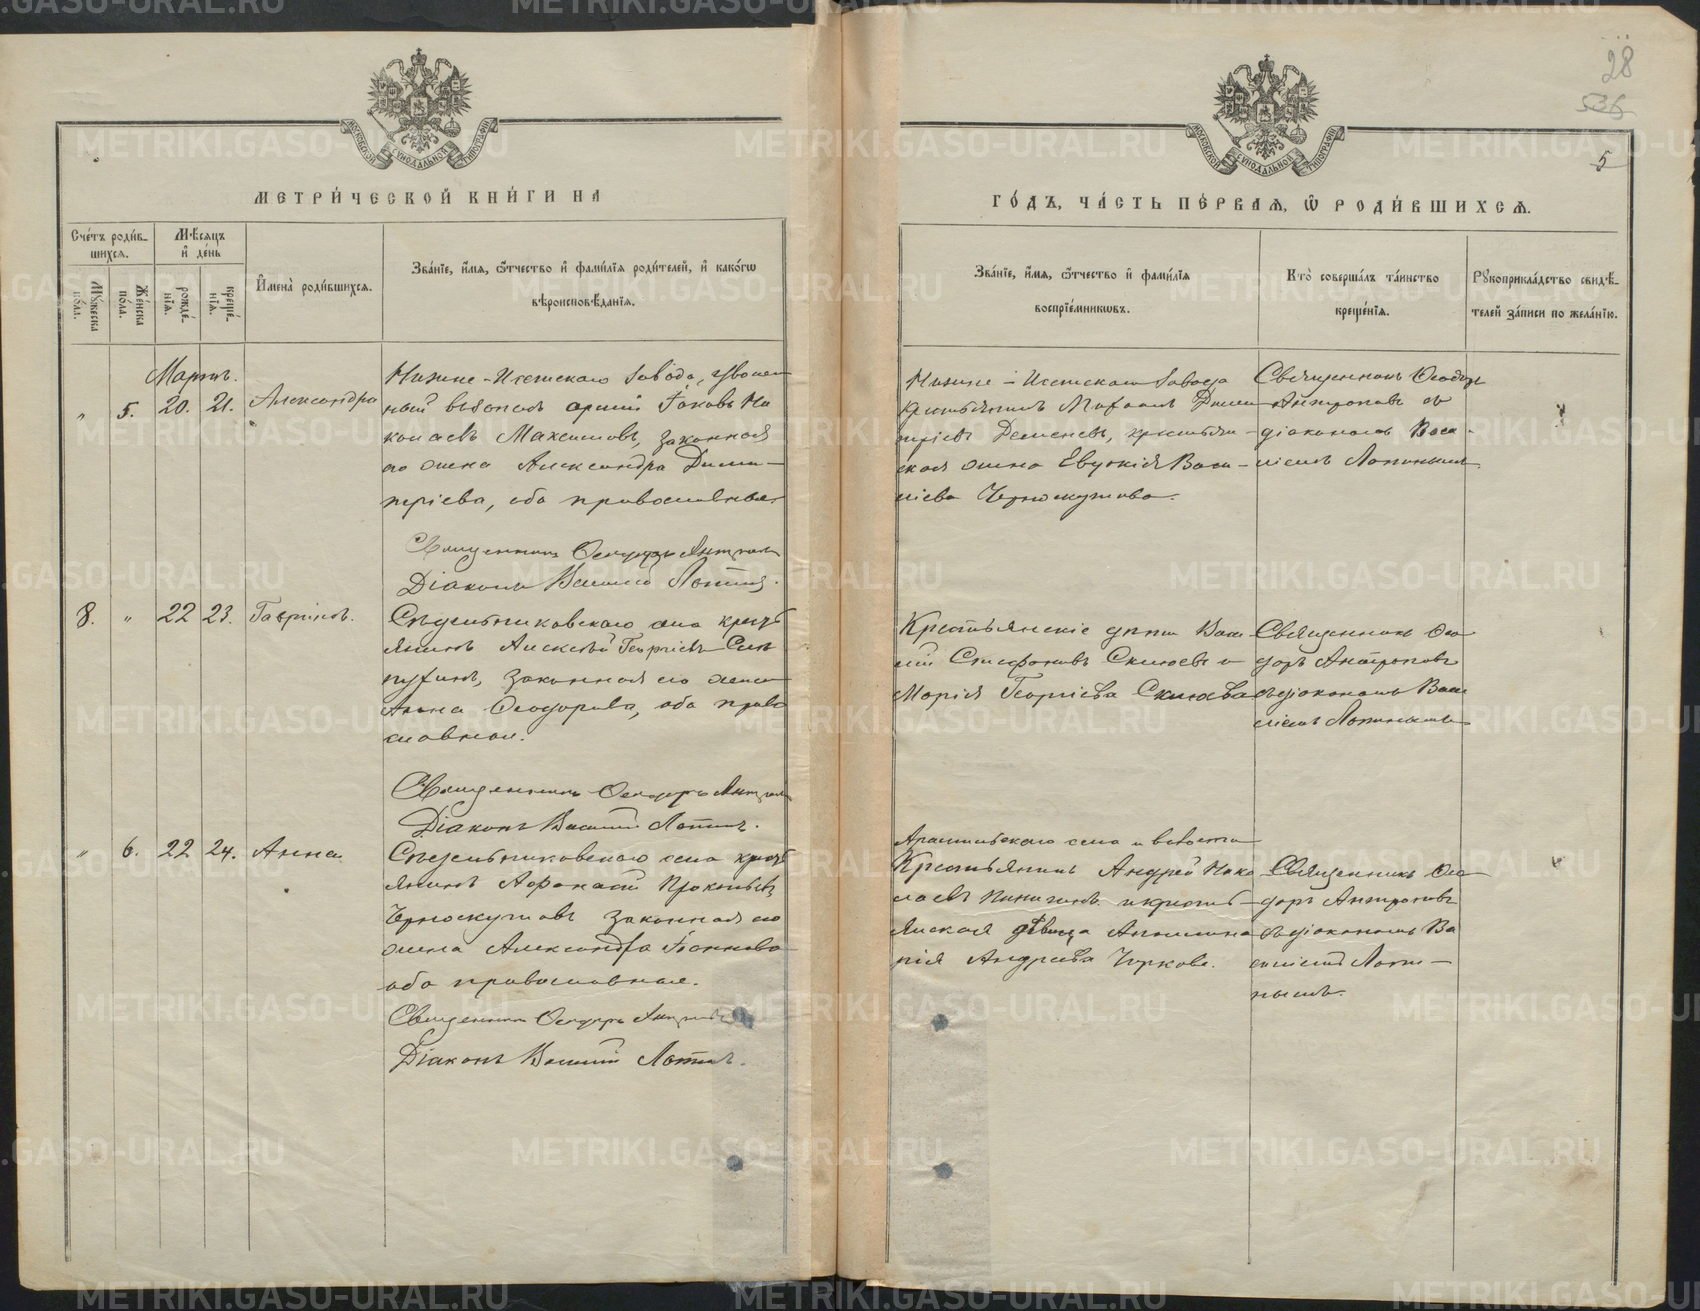 28
536
5
МОСКОВСКОЙ СѴНОДАЛЬНОЙ ТИПОГРАФІИ
МОСКОВСКОЙ СѴНОДАЛЬНОЙ ТИПОГРАФІИ
МЕТРИ́ЧЕСКОЙ КНИ́ГИ НА
ГО́ДЪ, ЧА́СТЬ ПЕ́РВАЯ, Ѿ РОДИ́ВШИХСЯ.
Сче́тъ роди́в-
шихся.
Мѣ́сяцъ
и҆ де́нь
Мꙋ́жеска
по́ла.
Же́нска
по́ла.
рожде́-
нїя.
креще́-
нїя.
И҆мена̀ роди́вшихся.
Зва́нїе, и҆́мя, ѻ҆́тчество и҆ фами́лїя роди́телей, и҆ како́гѡ
вѣроисповѣ́данїя.
Зва́нїе, и҆́мя, ѻ҆́тчество и҆ фами́лїя
воспрїе́мникѡвъ.
Кто̀ соверша́лъ та́инство
креще́нїя.
Рꙋкоприкла́дство свидѣ́-
телей за́писи по жела́нїю.
Мартъ.
" 5. 20. 21. Александра
Нижне-Исетскаго завода, уволен
ный въ запасъ арміи Іаковъ Ни
колаевъ Максимовъ, законная
его жена Александра Дими-
тріева, оба православные
Священникъ Ѳеодоръ Антропов
Діаконъ Василій Лопинъ.
Нижне-Исетскаго завода
крестьянинъ Михаилъ Дими
тріевъ Деменевъ, крестьян-
ская жена Евдокія Васи-
ліева Черноскутова.
Священникъ Ѳеодоръ
Антроповъ съ
діакономъ Васи-
ліемъ Лопинымъ.
8. " 22 23. Гавріилъ.
Сѣдельниковскаго села кресть
янинъ Алексѣй Георгіевъ
законная его жена
Анна Ѳеодорова, оба право
славные.
Священникъ Ѳеодоръ Антропов
Діаконъ Василій Лопинъ.
Крестьянскіе дѣти Васи
лій Стефановъ и
Марія Георгіева
Священникъ Ѳео
доръ Антроповъ
съ діакономъ Васи
ліемъ Лопинымъ
" 6. 22 24. Анна
Сѣдельниковскаго села кресть
янинъ Аѳанасій Прокопьевъ
Черноскутовъ законная его
жена Александра Іоаннова
оба православные.
Священникъ Ѳеодоръ Антропов
Діаконъ Василій Лопинъ.
Арамильскаго села и волости
Крестьянинъ Андрей Нико
лаевъ и кресть-
янская дѣвица Аполлина
рія Андреева Чуркова.
Священникъ Ѳео
доръ Антроповъ
съ діакономъ Ва
силіемъ Лопи-
нымъ.
METRIKI.GASO-URAL.RU